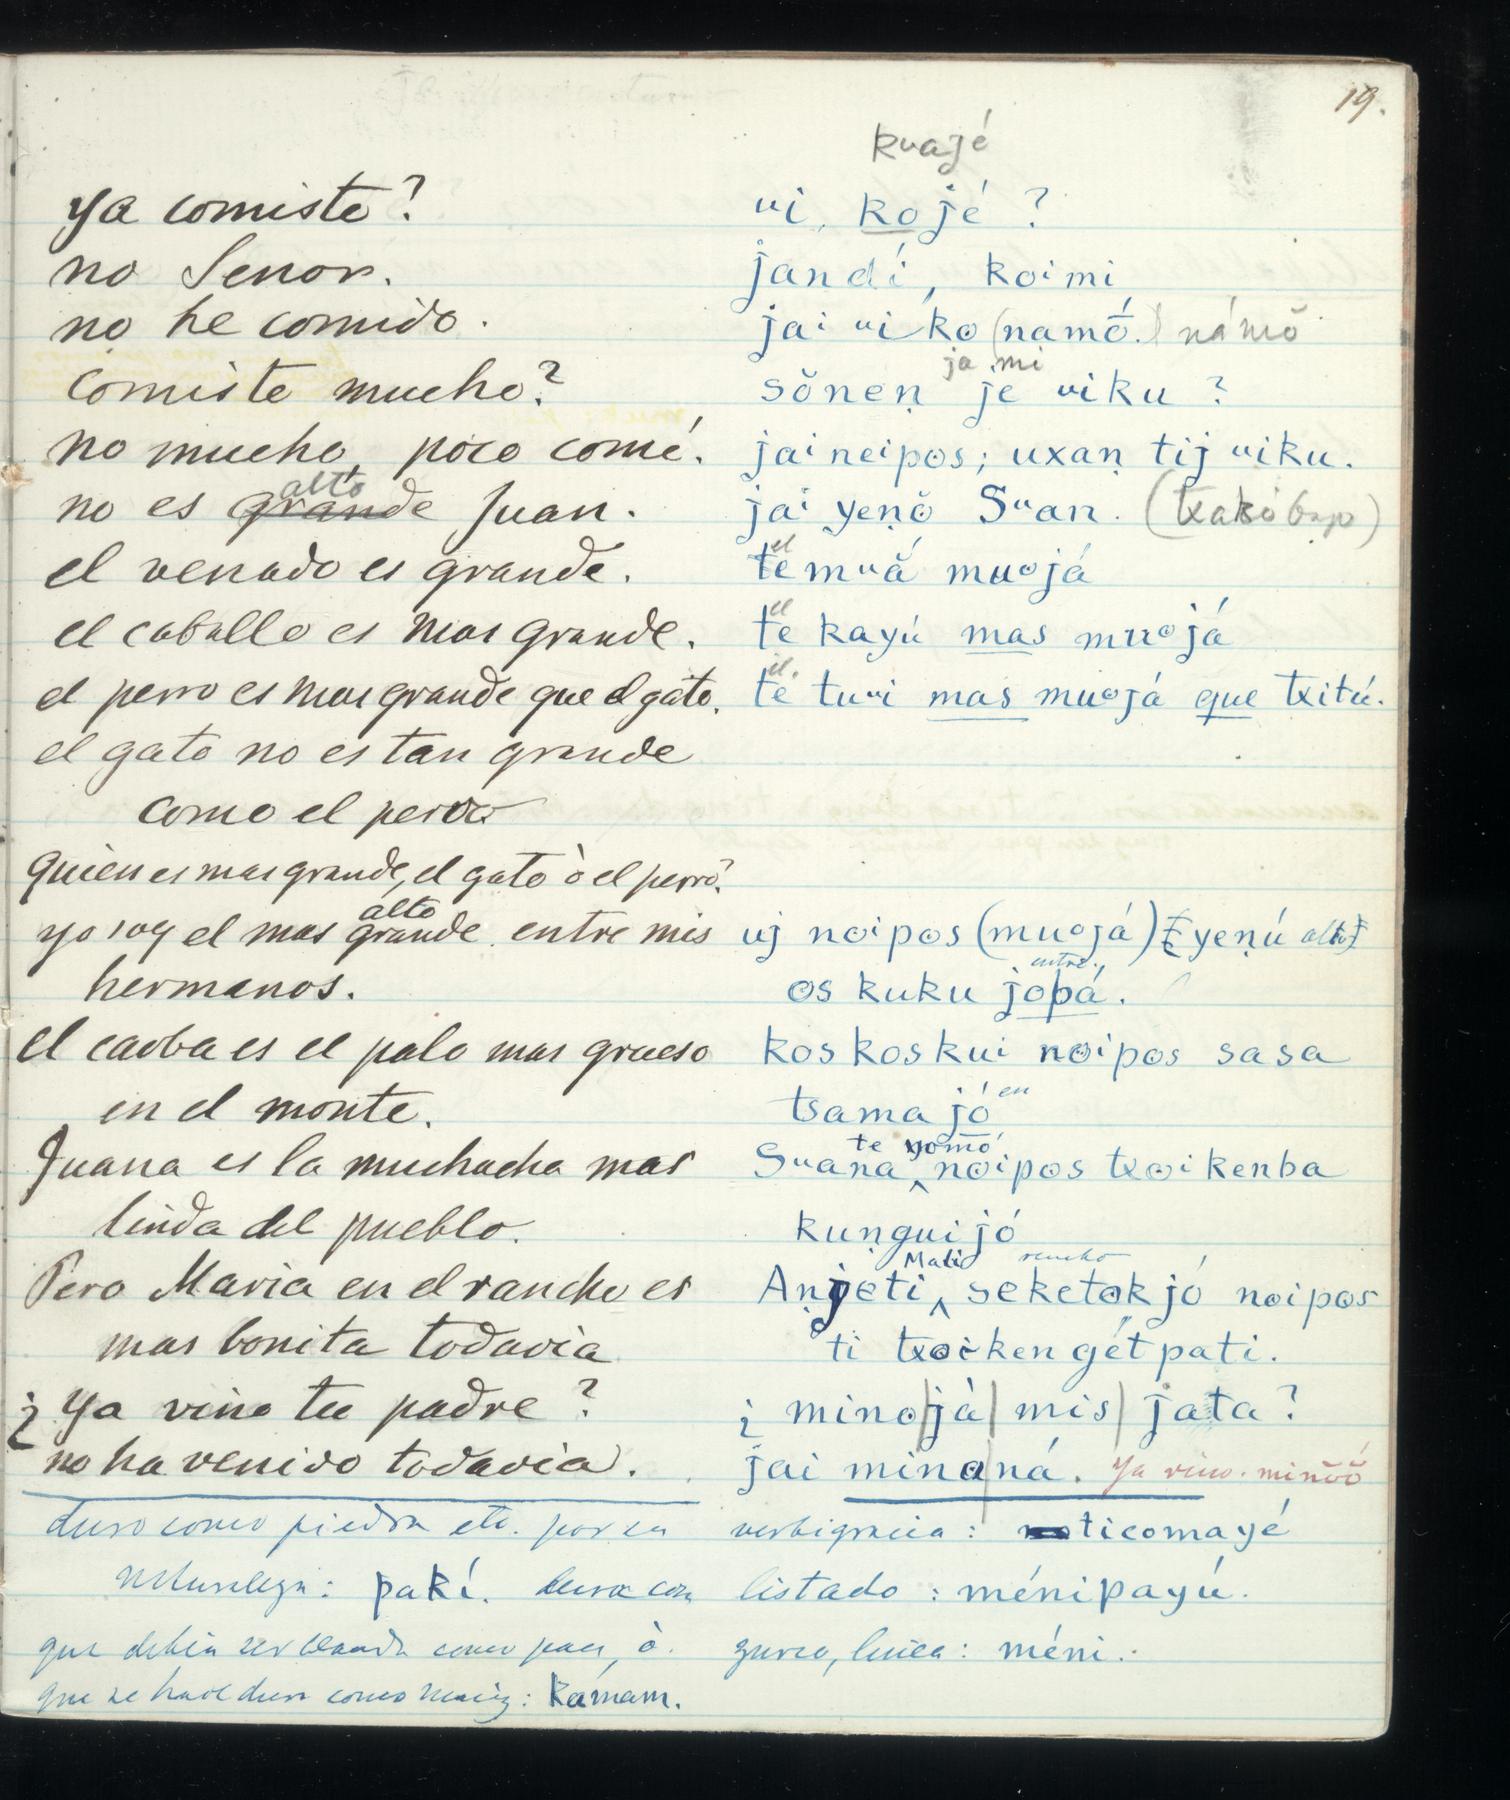 19.
kuajé
ya comiste? ui, kojé ?
no Senor. jandí, koimi
no he comido. jaⁱ ui ko (namō.) námŏ
ja mi
comiste mucho? sŏneṇ je uiku ?
no mucho poco comé. jaⁱ neipos; uxaṇ tij uiku.
alto
no es grande Juan. jaⁱ yeṇŏ Sᵘan. (txakóbap)
el
el venado es grande. te mᵘă muojá
el
el caballo es mas grande. te kayú mas muojá
el.
el perro es mas grande que el gato. te tuui mas muojá que txitú.
el gato no es tan grande
como el perro
Quien es mas grande, el gato ò el perro?
alto
yo soy el mas grande entre mis uj noipos (muojá) yeṇú alto
entre.
hermanos. os kuku jopá.
el caoba es el palo mas grueso koskoskui noipos sasa
en el monte. tsama jó en
te yomō
Juana es la muchacha mas Sᵘana noipos txoikenba
linda del pueblo. kuṇgui jó
Malid rancho
Pero Maria en el rancho es Aṇjeti, seketokjó noipos
mas bonita todavia ti txoiken gétpati.
¿ Ya vino tu padre? ¿ mino|já| mis| jata?
no ha venido todavia. jai mina|ná. Ya vino. minŏŏ
duro como piedra etc. por su verbigracia: ticomayé
naturaleza: pakí. duro con listado : ménipayú.
que debia ser blando como pan, ò. zurco, linea: méni.
que se hace duro como maiz: kámam.